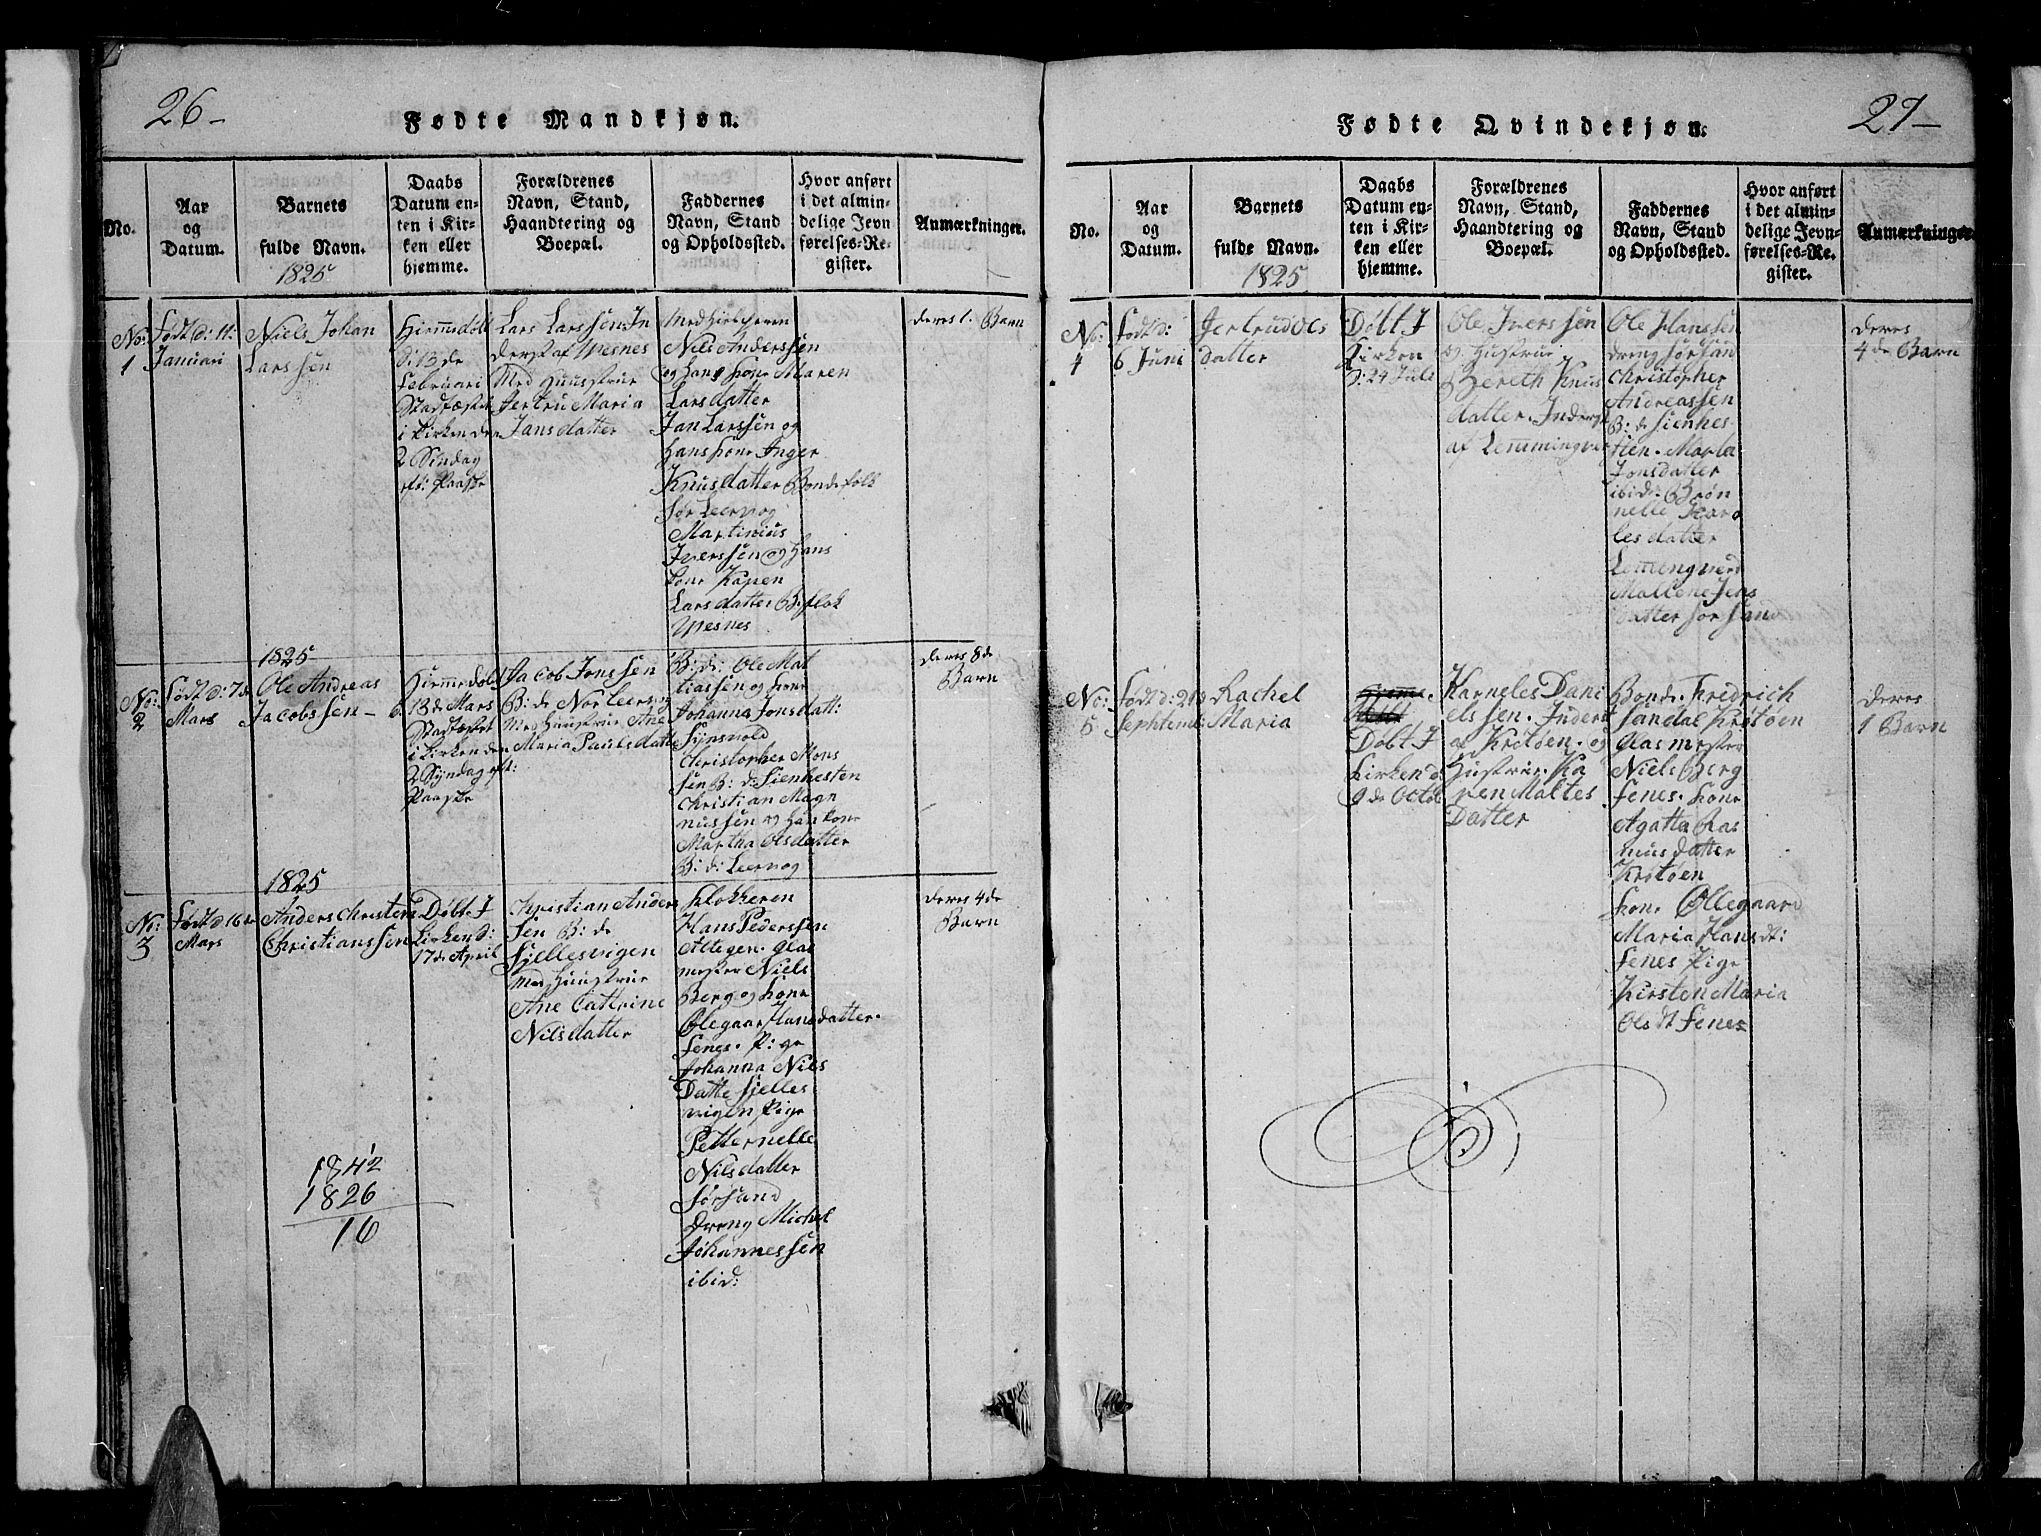 26-
Fødte Mandkjøn.
No.
Aar
og
Datum.
Barnets
fulde Navn.
1825
Daabs
Datum en-
ten i Kir-
ken eller
hjemme.
Forældrenes
Navn, Stand,
Haandtering og
Boepæl.
Faddernes
Navn, Stand
og Opholdssted.
Hvor anført
i det almin-
delige Jevn
førelses-Re-
gister.
Anmærkninger.
No:
1
Født d: 11
Januari
Niels Johan
Larssen
Hiemmedøbt
d: 13 de
Februari
Stadfæstet
i Kirken den
2 Søndag
eft: Paaske
Lars Larssen In
derst af
Med Huustrue
Jertru Maria
Jansdatter
Nils Anderssen
og Hans kone Maren
Larsdatter
Jan Larssen og
Hans kone Inger
Knusdatter Bondefolk
Sør Leervog
Martinius
Iverssen og Hans
kone Karen
Larsdatter
deres 1 Barn
1825
No:
2
Født d: 7de
Mars
Ole Andreas
Jacobssen
Hiemmedøbt
d. 13de Mars
Stadfæstet
i Kirken den
2 Syndag eft:
Paaske
Jacob Jonssen
B: de Nor Leervog
Med Huustrue Ane
Maria Paulsdatter
B: de: Ole Mat
tiassen og kone
Johanna Jonsdatt:
Christopher Mons
sen B: de: Sienhesten
Christian Mag
nussen og Hans kone
Martha Olsdatter
B: d: Leervog
deres 8 de
Barn
1825
No:
3
Født d 16 de
Mars
Anders Christen
Christianssen
Døbt I
Kirken d:
17de April
Christian Anders
sen B: de
Siellesvigen
Med Huustrue
Ane Cathrine
Nilsdatter
Klokkeren
Hans Pederssen
Altegen. Glas
mester Niels
Berg og kone
Ølegaar Hansdatter.
Fenes. Pige
Johanna Niels
Datte Sielles
vigen Pige
Petternelle
Nilsdatter
Sørsand
Dreng Michel
Johannessen
ibid:
deres 4 de
Barn
1842
1826
16
27-
Fødte Qvindekjøn.
No.
Aar
og
Datum.
Barnets
fulde Navn.
1825
Daabs
Datum en-
ten i Kir-
ken eller
hjemme.
Forældrenes
Navn, Stand,
Haandtering og
Boepæl.
Faddernes
Navn, Stand
og Opholdssted.
Hvor anført
i det almin-
delige Jevn-
førelses-Re-
gister.
Anmærkninger
No:
4
Født d:
6 Juni
Jertrud Ols
datter
Døbt I
Kirken
d: 24 Juli
Ole Iverssen
og Hustrue
Bereth Knus
datter. Inderst
af Lemmingvær
Ole Hanssen
dreng Sørsan
Christopher
Andreassen
B: de Sienhes
ten. Marta
Jonsdatter
ibid: Brøn
nelle Karo
lesdatter
Lemengvær
Mallene Jens
datter Sørsand
deres
4 de Barn
No:
5
Født d: 21
Sephtemb
Rachel
Maria
Døbt I
Kirken d
9 de Octob
Karneles Dani
elssen. Inderst
af Krøtøen. og
Hustrue. Ka
ren Maltes
Datter
Bonde. Fredrich
Sandal Krøtøen
Glasmester
Niels Berg
Fenes. kone
Agatta Ras
mus datter
Krøtøen
kone Øllegaard
Maria Hansdt:
Fenes Pige
Kirsten Maria
Ols dt Fenes
deres
1 Barn